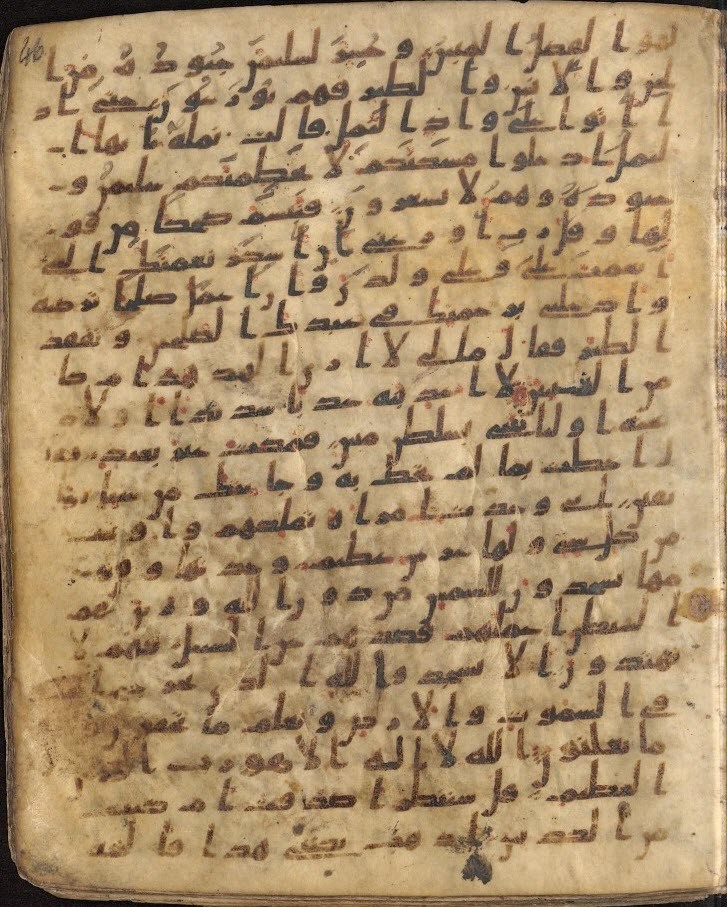 لهو الفضل المبين وحشر لسليمن جنوده من ا
لجن والانس والطير فهم يوزعون حتى اذ
ا اتوا على واد النمل قالت نملة يايها ا
لنمل ادخلوا مسكنكم لا يحطمنكم سليمن و
جنوده وهم لا يشعرون فتبسم ضحكا من قو
لها وقل رب اوزعني ان اشكر نعمتك التي
انعمت علي وعلى ولدي وان اعمل صلحا ترضيه
وادخلني برحمتك في عبدك الصلحين وتفقد
الطير فقال ما لي لا ارى الهدهد ام كا
ن من الغيبين لاعذبنه عذابا شديدا او لاذ
بحنه او لياتيني بسلطن مبين فمكث غير بعيد فقا
ل احطت بما لم تحط به وجيتك من سبا بنبا
يقين اني وجدت امراة تملكهم واوتيت
من كل شي ولها عرش عظيم وجدتها وقو
مها يسجدون للشمس من دون الله وزين لهم
الشيطن اعملهم فصدهم عن السبيل فهم لا
يهتدون الا يسجدوا لله الذي يخرج الخب
في السموت والارض ويعلم ما تخفون و
ما تعلنون الله لا اله الا هو رب العرش
العظيم قل سننظر اصدقت ام كنت
من الكذبين اذهب بكتبي هذا فالقه